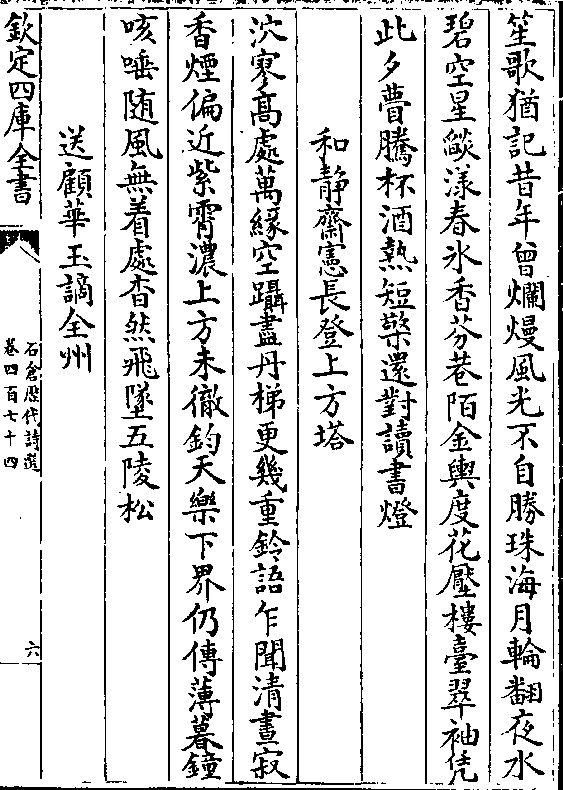 笙歌猶記昔年曾爛熳風光不自勝珠海月輪翻夜水
碧空星燄漾春氷香芬巷陌金輿度花壓樓臺翠袖凭
此夕瞢騰杯酒熟短檠還對讀書燈
和靜齋憲長登上方塔
泬寥高處萬緣空躡盡丹梯更幾重鈴語乍聞清晝寂
香煙偏近紫霄濃上方未徹鈞天樂下界仍傳薄暮鐘
咳唾随風無着處杳然飛墜五陵松
送顧華玉謫全州
欽定四庫全書
石倉歴代詩選
卷四百七十四
六